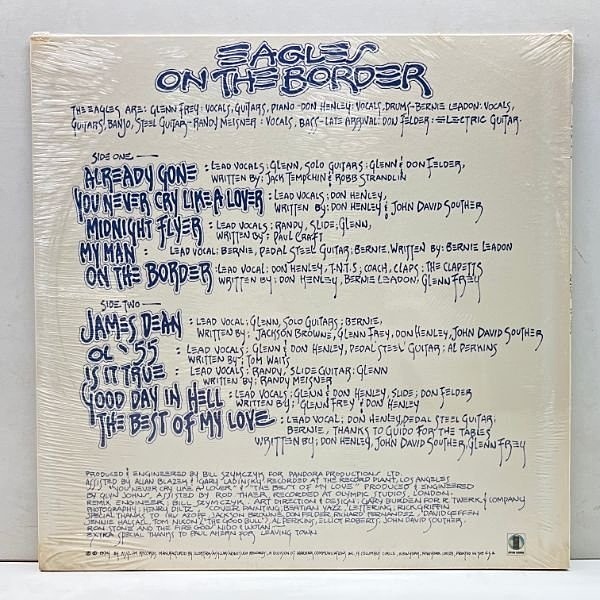 EAGLES
ON THE BORDER
THE EAGLES ARE: GLENN FREY: VOCALS, GUITARS, PIANO - DON HENLEY: VOCALS, DRUMS - BERNIE LEADON: VOCALS,
GUITARS, BANJO, STEEL GUITAR - RANDY MEISNER: VOCALS, BASS - LATE ARRIVAL: DON FELDER: ELECTRIC GUITAR.
SIDE ONE
ALREADY GONE: LEAD VOCALS: GLENN, SOLO GUITARS: GLENN & DON FELDER,
WRITTEN BY: JACK TEMPCHIN & ROBB STRANDLIN
YOU NEVER CRY LIKE A LOVER: LEAD VOCALS: DON HENLEY,
WRITTEN BY: DON HENLEY & JOHN DAVID SOUTHER
MIDNIGHT FLYER: LEAD VOCALS: RANDY, SLIDE: GLENN,
WRITTEN BY: PAUL CRAFT
MY MAN: LEAD VOCAL: BERNIE, PEDAL STEEL GUITAR: BERNIE, WRITTEN BY: BERNIE LEADON
ON THE BORDER: LEAD VOCAL: DON HENLEY, T.N.T.S; COACH, CLAPS: THE CLAPETTS
WRITTEN BY: DON HENLEY, BERNIE LEADON, GLENN FREY
SIDE TWO
JAMES DEAN: LEAD VOCAL: GLENN, SOLO GUITARS: BERNIE,
WRITTEN BY: JACKSON BROWNE, GLENN FREY, DON HENLEY, JOHN DAVID SOUTHER
OL' '55: LEAD VOCALS: GLENN & DON HENLEY, PEDAL STEEL GUITAR: AL PERKINS
WRITTEN BY: TOM WAITS
IS IT TRUE: LEAD VOCALS: RANDY, SLIDE GUITAR: GLENN
WRITTEN BY: RANDY MEISNER
GOOD DAY IN HELL: LEAD VOCALS: GLENN & DON HENLEY, SLIDE: DON FELDER
WRITTEN BY: GLENN FREY & DON HENLEY
THE BEST OF MY LOVE: LEAD VOCAL: DON HENLEY, PEDAL STEEL GUITAR:
BERNIE, THANKS TO GUIDO FOR THE TABLES
WRITTEN BY: DON HENLEY, JOHN DAVID SOUTHER, GLENN FREY
PRODUCED & ENGINEERED BY BILL SZYMCZYK FOR PANDORA PRODUCTIONS LTD.
ASSISTED BY ALLAN BLAZEK & GARY LADINSKY RECORDED AT THE RECORD PLANT, LOS ANGELES
"YOU NEVER CRY LIKE A LOVER" & "THE BEST OF MY LOVE" PRODUCED & ENGINEERED
BY GLYN JOHNS, ASSISTED BY ROD THAER, RECORDED AT OLYMPIC STUDIOS, LONDON.
REMIX ENGINEER: BILL SZYMCZYK. ART DIRECTION & DESIGN: GARY BURDEN FOR R. TWERK & COMPANY
PHOTOGRAPHY: HENRY DILTZ COVER PAINTING: BEATIAN YAZZ, LETTERING: RICK GRIFFIN
SPECIAL THANKS TO IRV AZOFF, JACKSON BROWNE, DON FELDER, RICHARD FERNANDEZ, DAVID GEFFEN
JENNIE HALSALL, TOM NIXON ("THE GOOD BULL"), AL PERKINS, ELLIOT ROBERTS, JOHN DAVID SOUTHER,
RON STONE AND THE FIRES OF
EXTRA SPECIAL THANKS TO PAUL AHERN FOR LEAVING TOWN